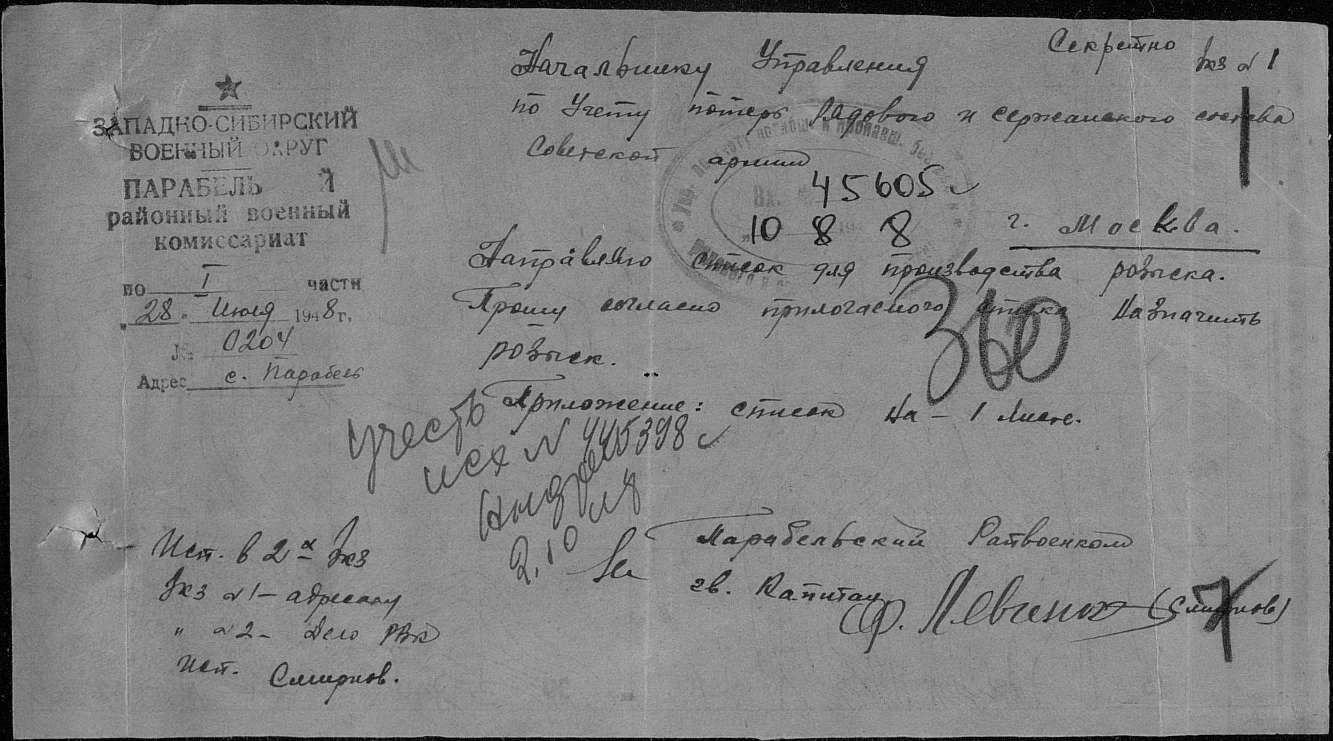 Секретно
Экз №1
Начальнику Управления
по Учету потерь Рядового и сержанского состава
Советской армии
г. Москва.
ЗАПАДНО-СИБИРСКИЙ
ВОЕННЫЙ ОКРУГ
ПАРАБЕЛЬ Й
районный военный
комиссариат
по I части
"28" Июля 1948 г.
№ 0204
Адрес с. Парабель
45605
10 8 8
Направляю список для производства розыска.
Прошу согласно прилогаемого списка Назначить
розыск.
360
Приложение: список на - 1 листе.
учесть
исх N 445398
2.10
Парабельский Райвоенком
гв. Капитан
(Смирнов)
Исп. в 2х Экз
Экз №1 - адресату
" №2 - Дело РВК
Исп. Смирнов.